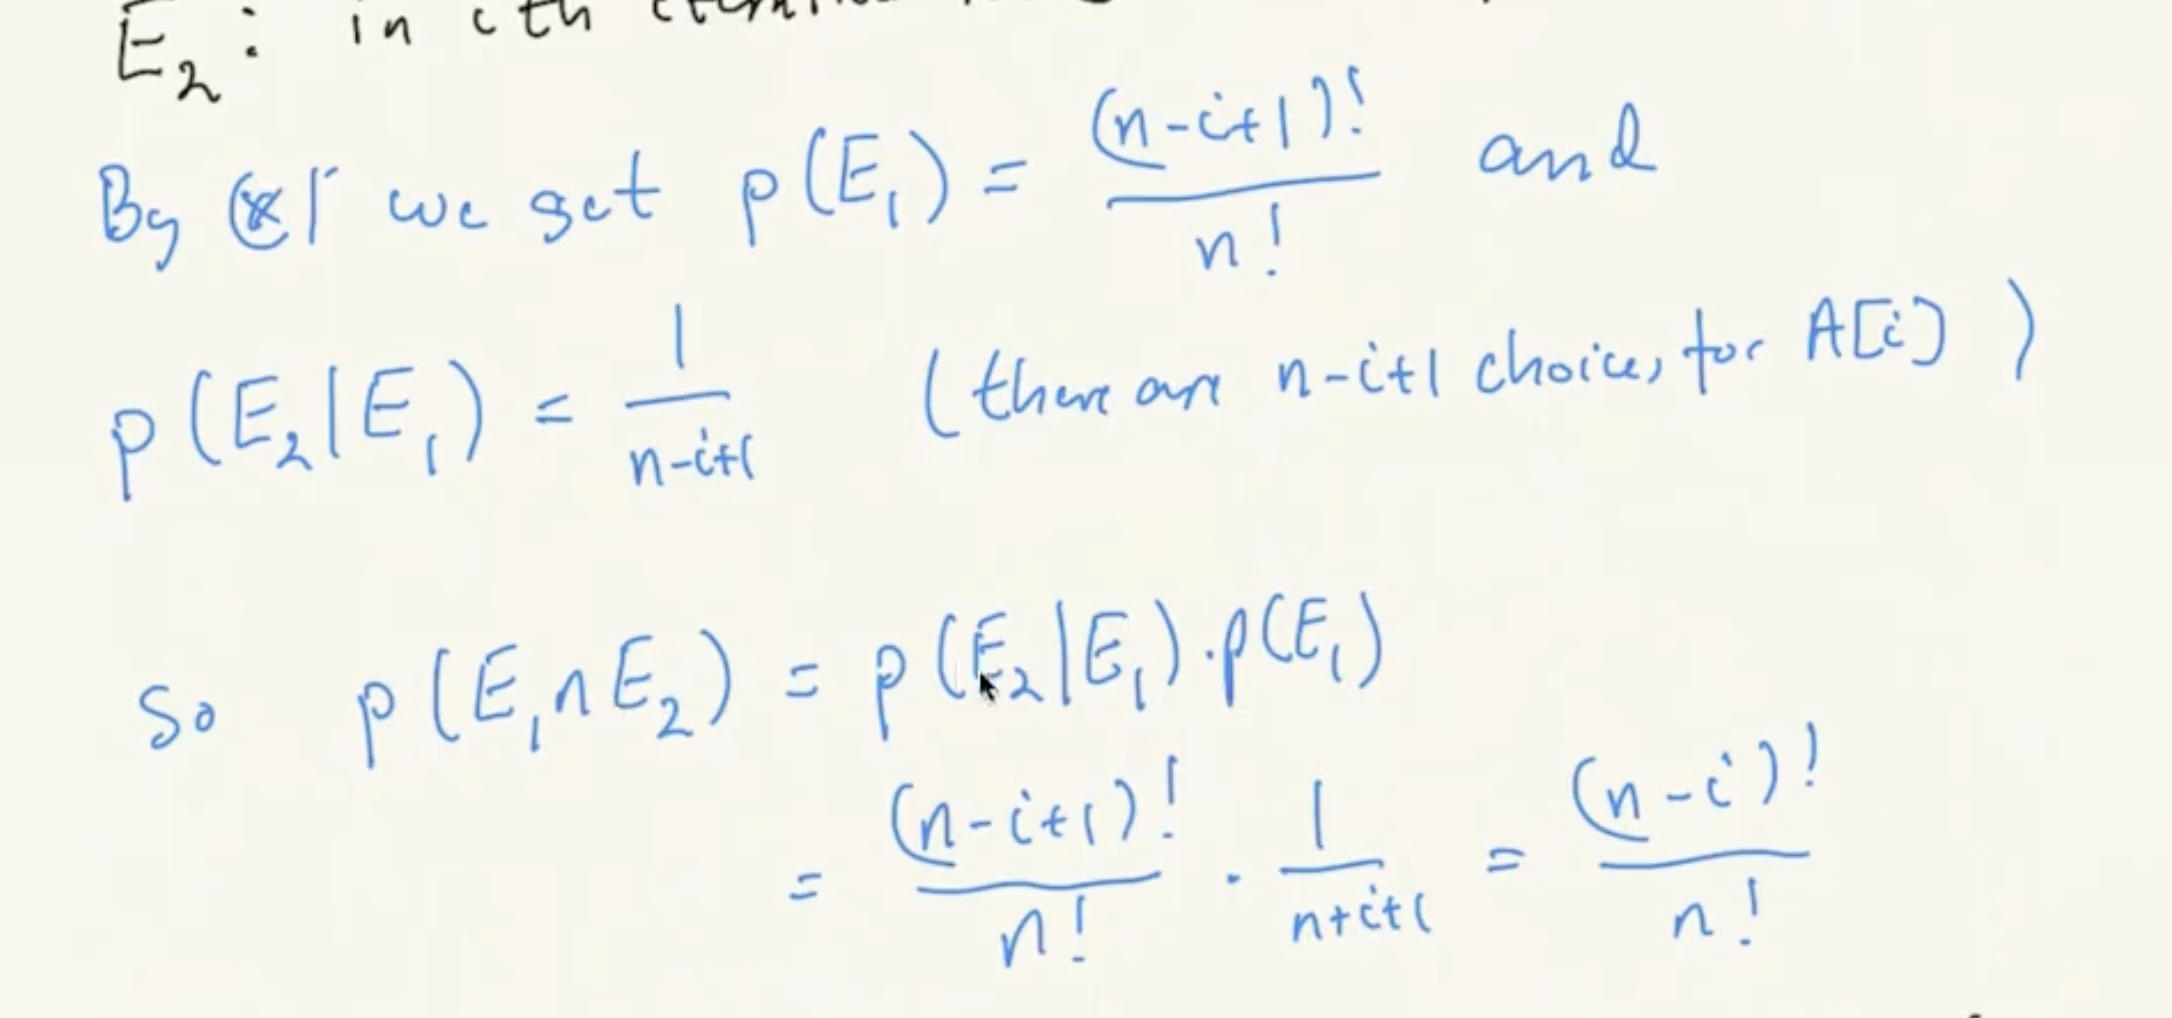 E₂: in ith
By (*) we get p(E₁) = (n-i+1)! / n! and
p(E₂|E₁) = 1 / n-i+1 (there are n-i+1 choices for A[i])
So p(E₁∩E₂) = p(E₂|E₁)·p(E₁)
= (n-i+1)! / n! · 1 / n+i+1 = (n-i)! / n!